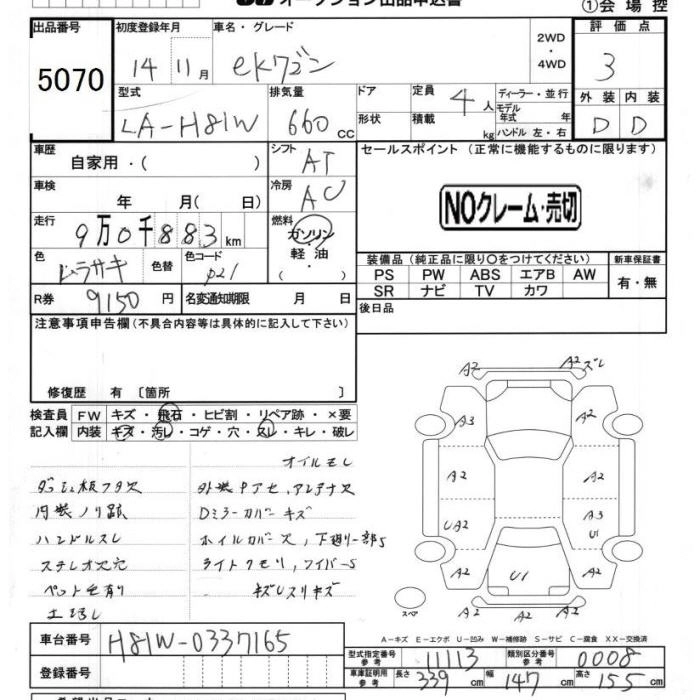 オークション出品申込書
①会場控
出品番号
5070
初度登録年月
14 11月
車名・グレード
ekワゴン
2WD
・
4WD
評価点
3
型式
LA-H81W
排気量
660 CC
ドア
形状
定員
4人
積載
kg
ディーラー・並行
モデル年式 年
ハンドル 左・右
外装 内装
D D
車歴
自家用・( )
シフト
AT
車検
年 月( 日)
冷房
AC
走行
9万0千883km
燃料
ガソリン
・
軽油
・
( )
色
ムラサキ
色替
色コード
P21
R券
9150円
名変通知期限 月 日
セールスポイント (正常に機能するものに限ります)
NOクレーム・売切
装備品(純正品に限り〇をつけてください)
PS PW ABS エアB AW
SR ナビ TV カワ
新車保証書
有・無
後日品
注意事項申告欄(不具合内容等は具体的に記入して下さい)
修復歴 有〔箇所 〕
検査員記入欄
FW キズ・飛石・ヒビ割・リペア跡・×要
内装 キズ・汚レ・コゲ・穴・スレ・キレ・破レ
オイルモレ
ダッシュ板フタ欠
外装中アセ、アンテナ欠
内装ノリ跡
Dミラーカバーキズ
ハンドルスレ
ホイルカバー欠、下廻り一部S
ステレオ欠穴
ライトクモリ、ワイパーS
ペット毛有り
キズレスリキズ
A2
A2 ズレ
A3 A2
A2 A2
UA2 A3 U1
A2 U1 A2
A2 A2
スペア
A-キズ E-エクボ U-凹み W-補修跡 S-サビ C-腐食 XX-交換済
車台番号
H81W-0337165
登録番号
型式指定番号 参考
11113
類別区分番号 参考
0008
車庫証明用 参考
長さ 339cm 幅 147cm 高さ 155cm